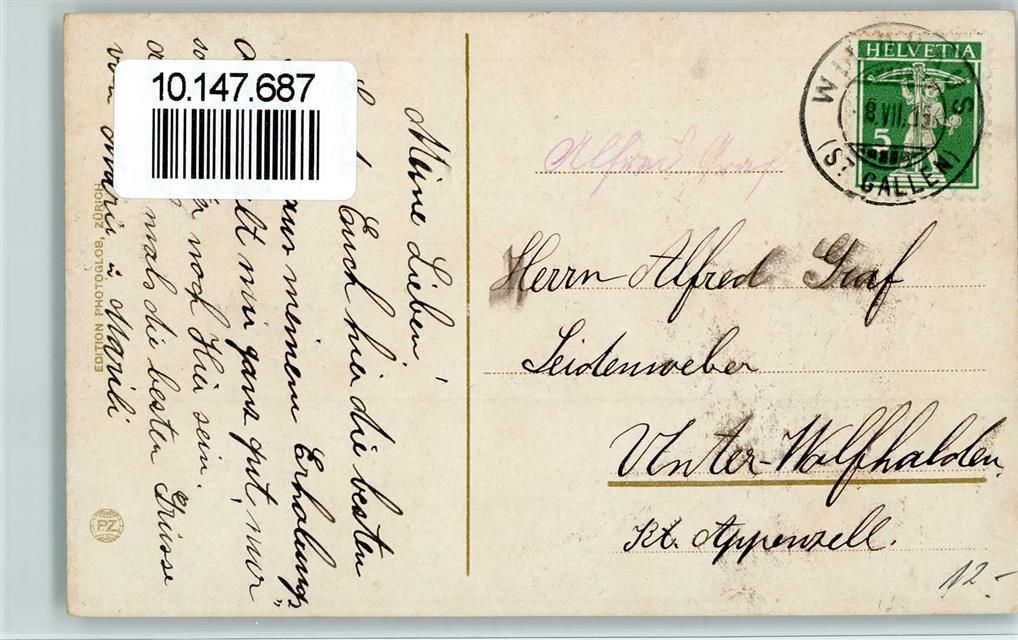 10.147.687
Meine Lieben!
Euch hier die besten
aus meinem Erholungs,,
mir ganz gut, nur
noch Hier sein.
mals die besten Grüsse
von Marili
EDITION PHOTOGLOB, ZÜRICH
PZ
HELVETIA
5
VII.15
(ST GALLEN)
Alfred Graf
Herrn Alfred Graf
Seidenweber
Unter-Wolfhalden
Kt. Appenzell.
12.-